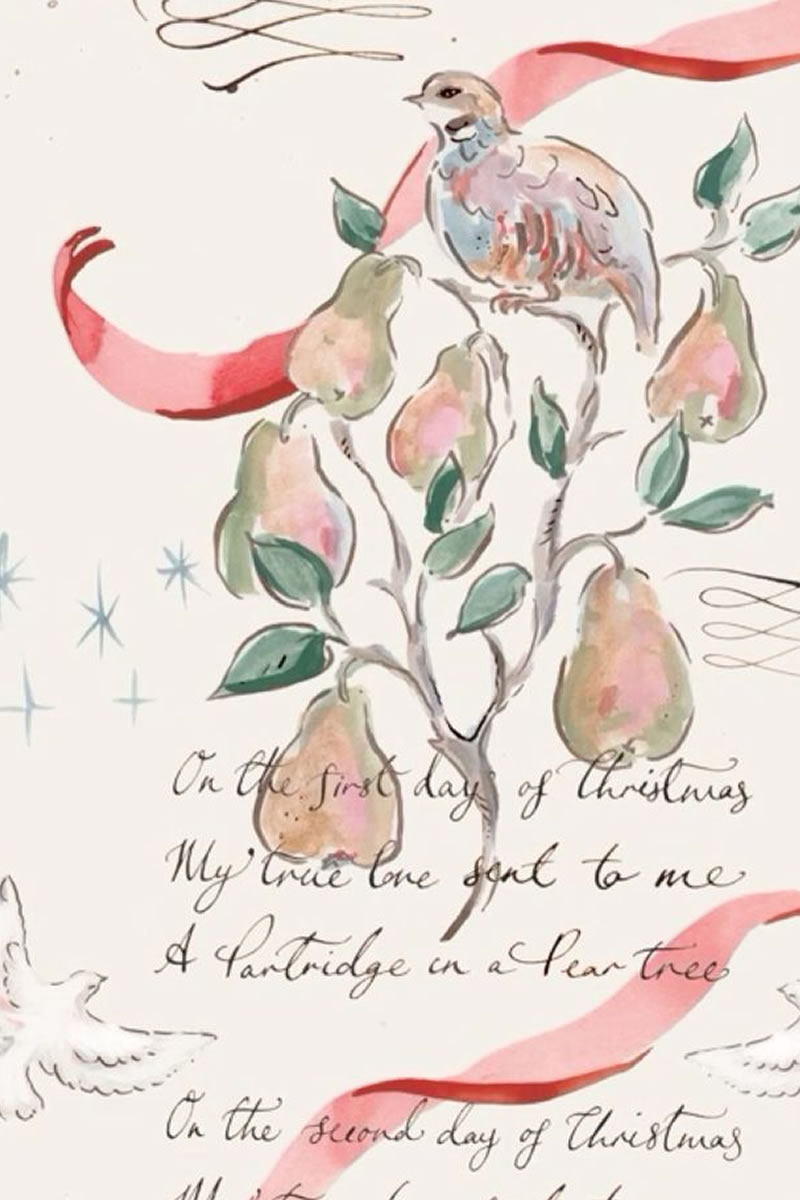 On the first day of Christmas
My true love sent to me
A Partridge in a Pear tree
On the second day of Christmas